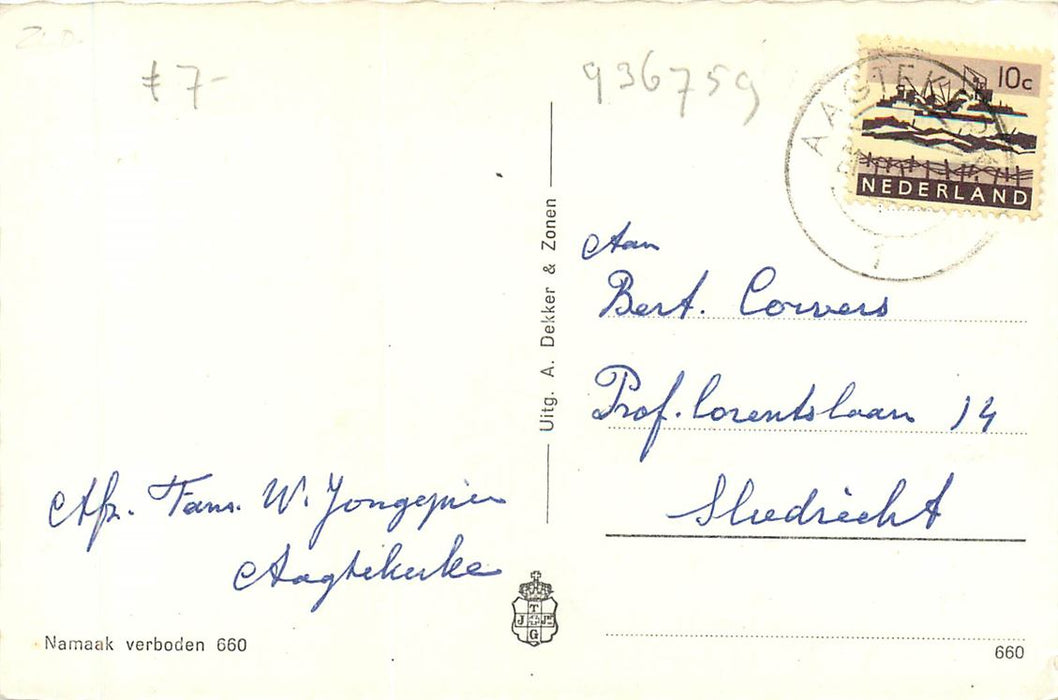 Z.D.
ƒ 7-
936759
AAGTEKERKE
10c
NEDERLAND
Uitg. A. Dekker & Zonen
Aan
Bert. Corvers
Prof. Lorentslaan 14
Sliedrecht
Afz. Fam. W. Jongepier
Aagtekerke
T
J Jr
G
Namaak verboden 660
660